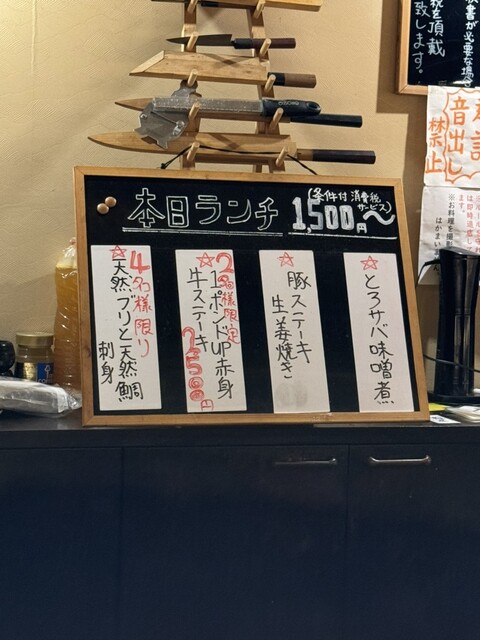 本日ランチ
(条件付 消費税
サービス)
1,500円〜
☆とろサバ味噌煮
☆豚ステーキ
生姜焼き
2名様限定
☆1ポンドUP赤身
牛ステーキ
2500円
4名様限り
☆天然ブリと天然鯛
刺身
な場合
を頂戴
致します。
音出し
禁止